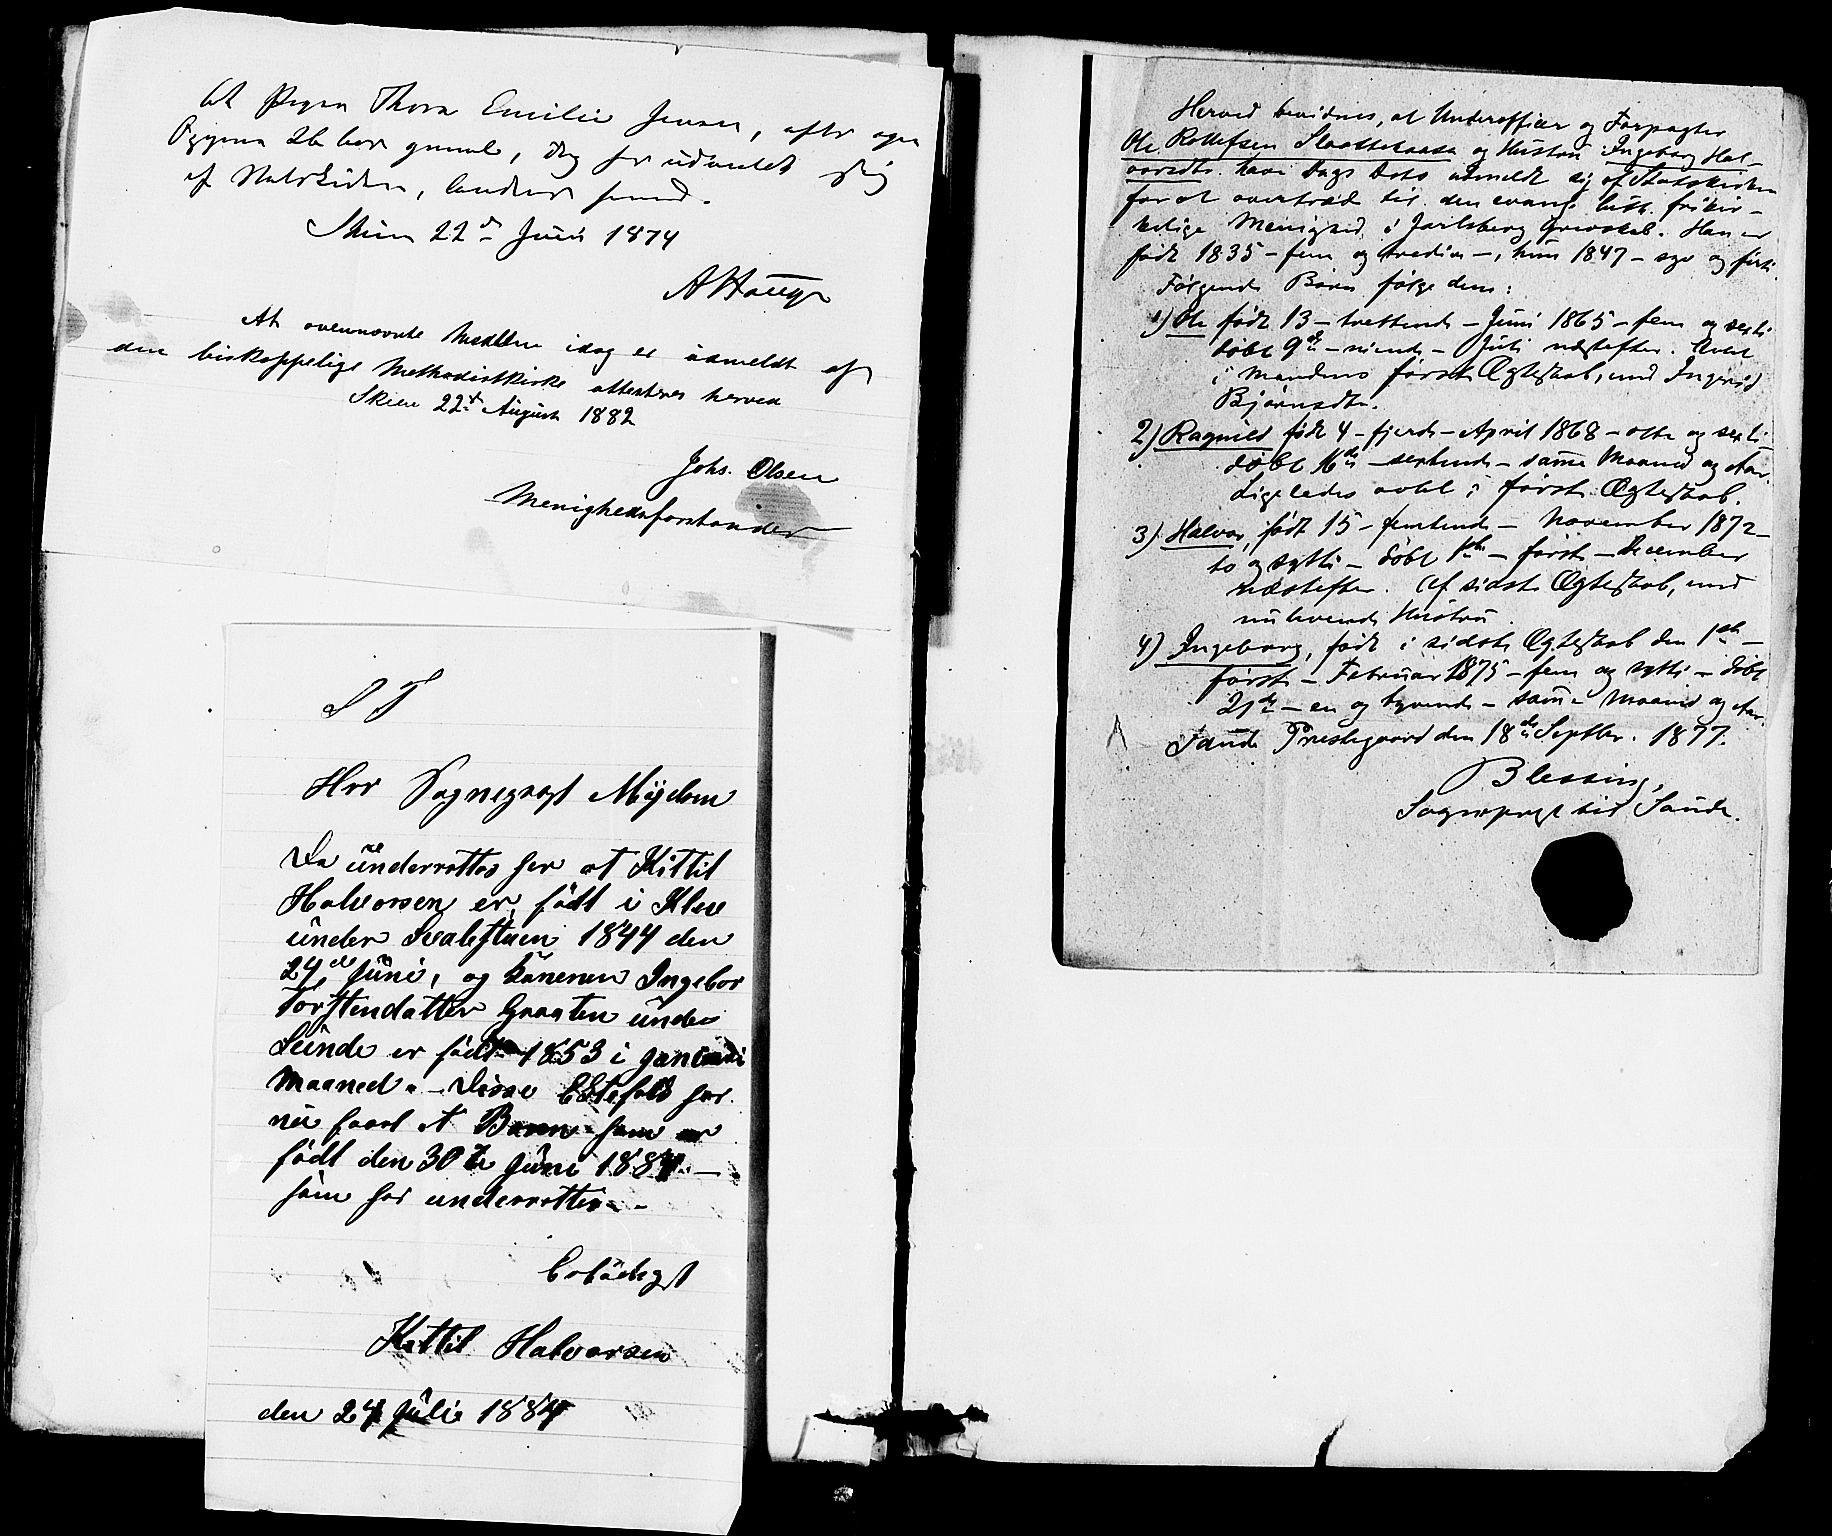 At Pigen Thora Emilie Jensen, efter egen
Opgivende 26 Aar gammel, idag har udmeldt sig
af Statskirken, bevidnes herved.
Skien 22de Juni 1874
A Hauge
At ovennævnte Medlem idag er udmeldt af
den biskoppelige Methodistkirke attesteres herved
Skien 22de August 1882
Johs. Olsen
Menighedsforstander
S T
Hrr Sognepræst
De underrettes her at Kittil
Halvorsen er født i Kleve
under 1844 den
24de Juni, og Konenen Ingebor
Torstendatter Graaten under
Lunde er født 1853 i januari
Maaned. – Disse Ektefolk har
nu faaet et Barn som er
født den 30te Juni 1884 –
som her underrettes –
Erbødigst
Kittil Halvorsen
den 24 Juli 1884
Herved bevidnes, at Underofficer og Forpagter
Ole Rollefsen og Hustru Ingeborg Hal-
vorsdtr. have Dags Dato udmeldt sig af Statskirken
for at overtræde til den evang. luth. frikir-
kelige Menighed i Jarlsberg Grevskab. Han er
født 1835 – fem og tredive –, hun 1847 – syv og førti.
Følgende Børn følge dem:
1) Ole født 13 – trettende – Juni 1865 – fem og sexti
døbt 9de – niende – Juli næstefter. Avlet
i Mandens første Ægteskab, med Ingerid
Bjørnsdtr.
2) Ragnild født 4 – fjerde – April 1868 – otte og sexti –
døbt 16de – sextende – samme Maaned og Aar.
Ligeledes avlet i første Ægteskab.
3) Halvor, født 15 – femtende – November 1872 –
to og sytti – døbt 1ste – første – December
næstefter. Af sidste Ægteskab, med
nulevende Hustru.
4) Ingeborg, født i sidste Ægteskab den 1ste –
første – Februar 1875 – fem og sytti – døbt
21de – en og tyvende – samme Maaned og Aar.
Sande Præstegaard den 18de Septbr. 1877.
Blessing,
Sognepræst til Sande.